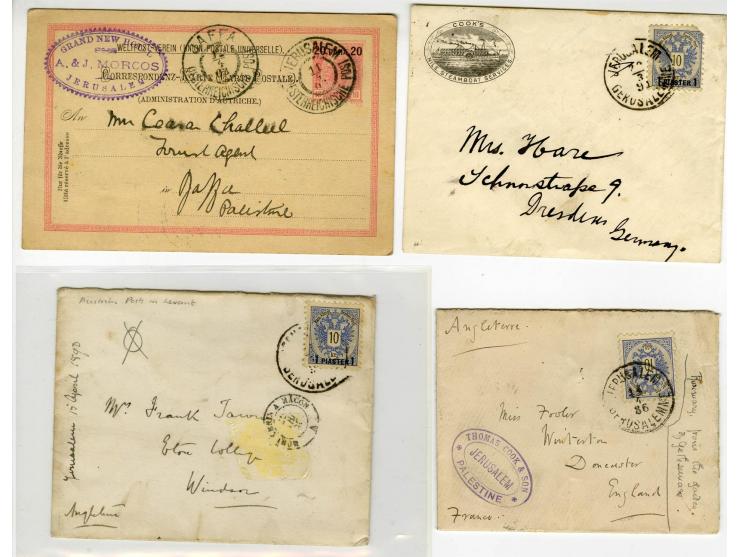 GRAND NEW HOTEL
A. & J. MORCOS
JERUSALEM
WELTPOST-VEREIN (UNION POSTALE UNIVERSELLE).
CORRESPONDENZ-KARTE (CARTE POSTALE).
(ADMINISTRATION D'AUTRICHE.)
20 PARA 20
JAFFA
OESTERREICHISCHE POST
JERUSALEM
OESTERREICHISCHE POST
An
Tourist Agent
in Jaffa
Palestine
Nur für die Adresse
Côté réservé à l'adresse
COOK'S
NILE STEAMBOAT SERVICES
JERUSALEM
GERUSALEMME
91
10
1 PIASTER 1
Mrs. Hare
Schnorrstraße 9.
Dresden
Germany.
Austrian Posts in Levant
10
1 PIASTER 1
Jerusalem 15 April 1890
Mr Frank
Eton College
Windsor
Angleterre
Angleterre.
10
JERUSALEM
GERUSALEMME
86
Miss Fooler
Winterton
Doncaster
England
France
THOMAS COOK & SON
JERUSALEM
PALESTINE
from the garden
of Gethsemane